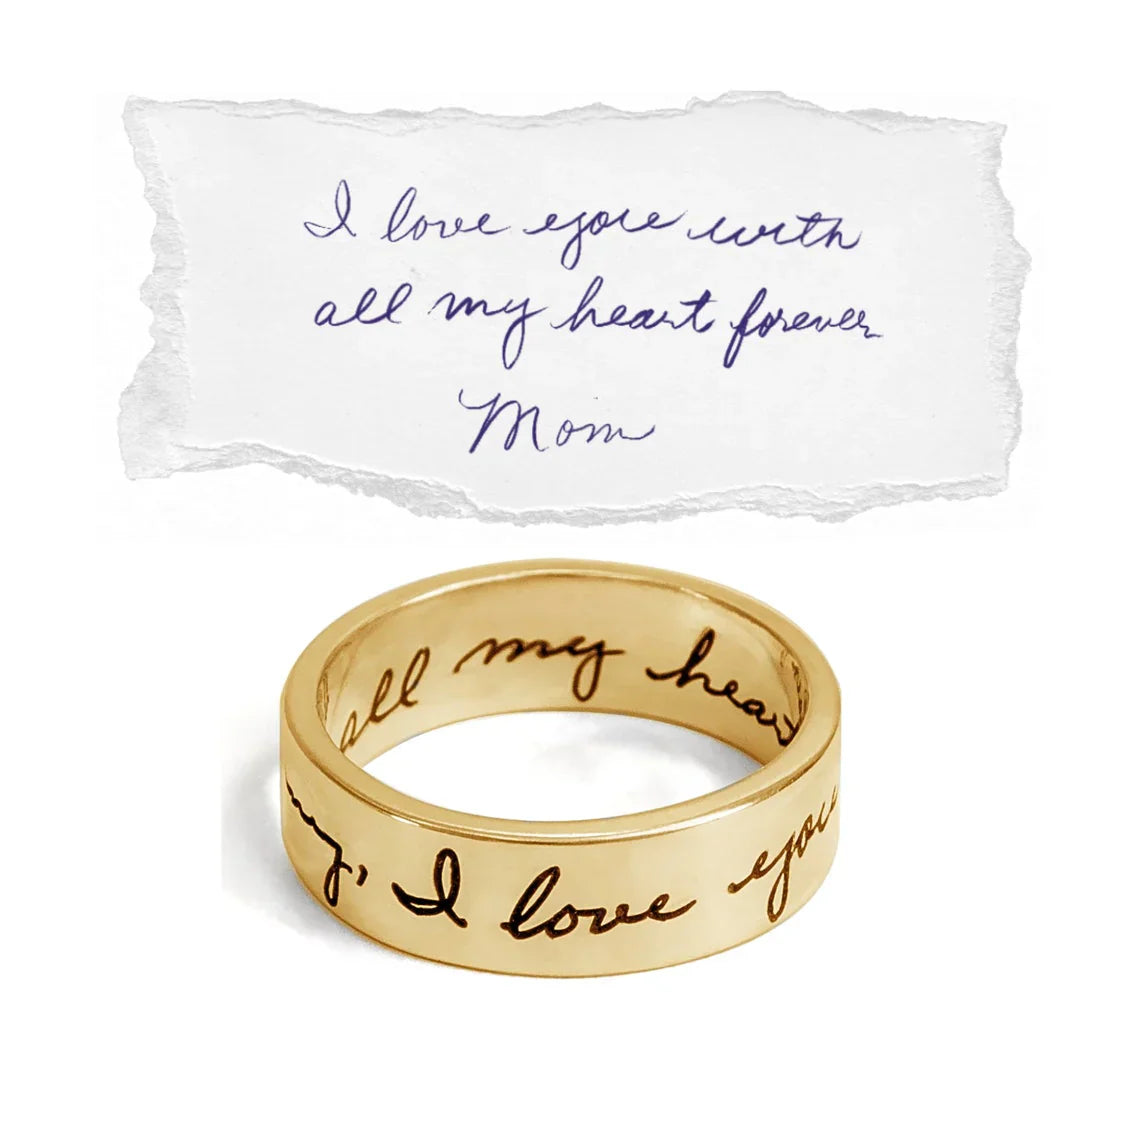 I love you with
all my heart forever
Mom
all my hear
my, I love you